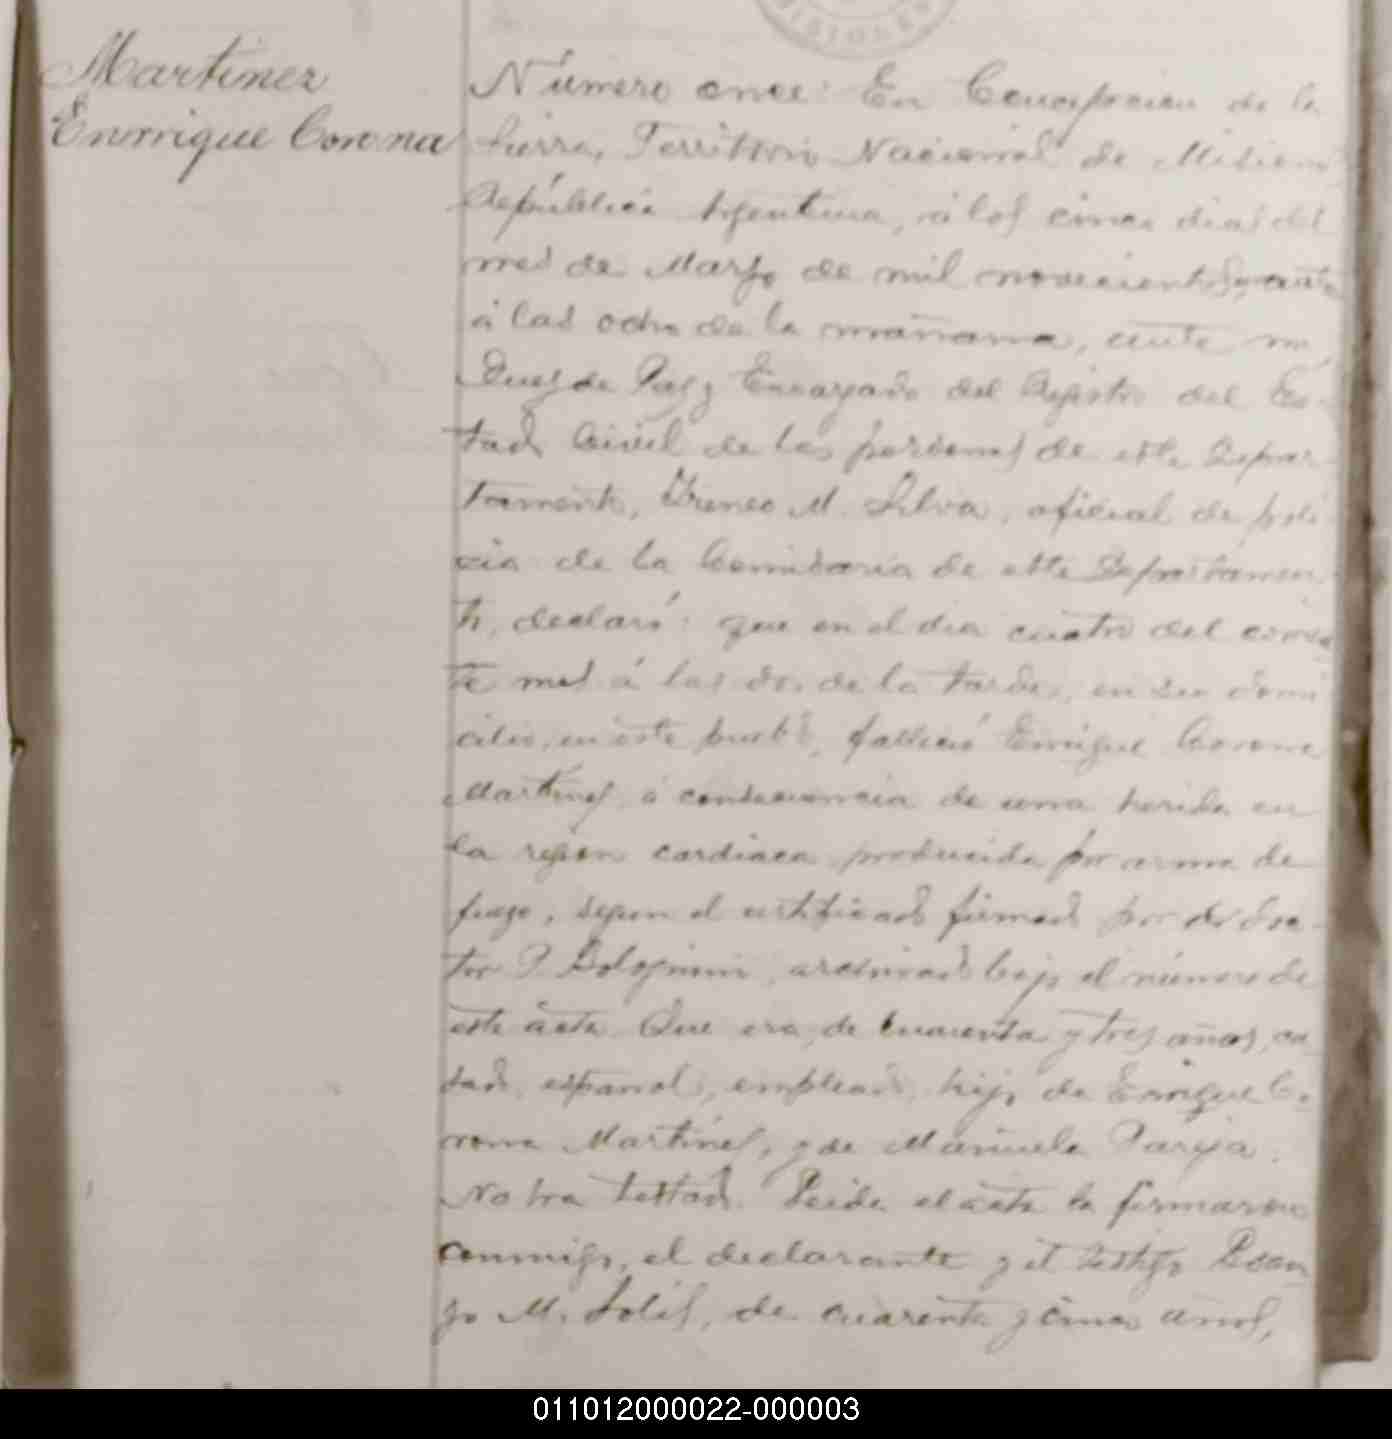 Martinez
Enrrique Corona
MISIONES
Número once: En Concepcion de la
Sierra, Territorio Nacional de Misiones
República Argentina, á los cinco dias del
mes de Marzo de mil novecientos
á las ocho de la mañana, ante mi,
Juez de Paz y Encargado del Registro del Es-
tado Civil de las personas de este Depar
tamento, Ireneo M. Silva, oficial de poli
cia de la Comisaria de este Departamen
to, declaró: que en el dia cuatro del corrien
te mes á las dos de la tarde, en su domi
cilio, en este pueblo, falleció Enrique Corona
Martinez á consecuencia de una herida en
la region cardiaca producida por arma de
fuego, segun el certificado firmado por el doc-
tor P. Bolognini, archivado bajo el número de
este acta. Que era de cuarenta y tres años, ca
sado, español, empleado, hijo de Enrique Co
rona Martinez, y de Manuela Pareja.
No ha testado. Leida el acta la firmaron
conmigo, el declarante y el testigo
M. Solis, de cuarenta y cinco años,
011012000022-000003